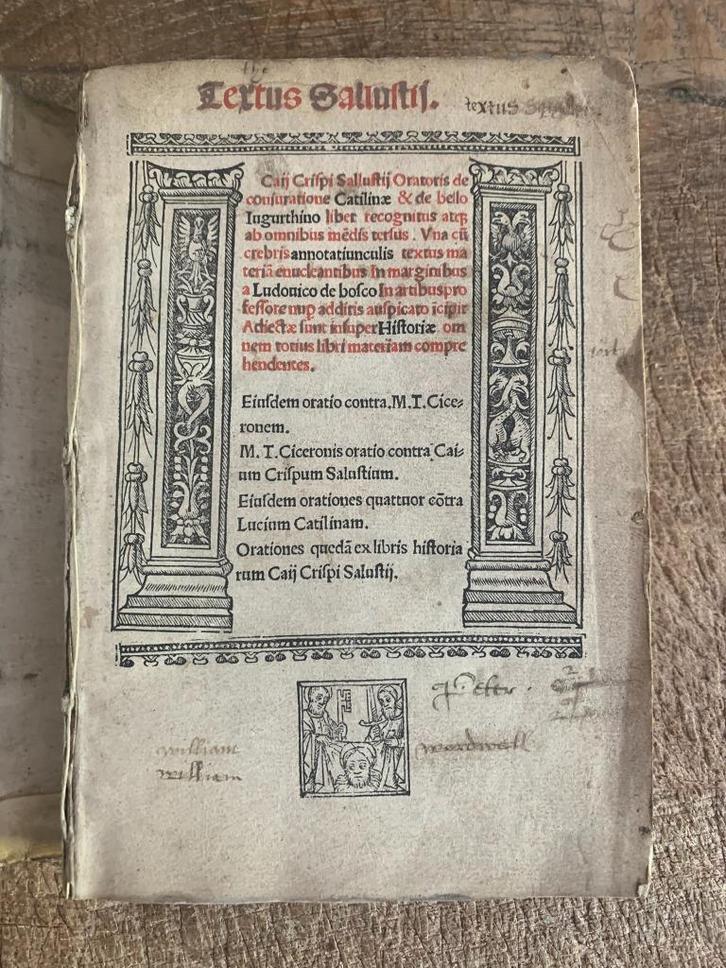 the
Textus Sallustij.
textus
Caij Crispi Sallustij Oratoris de
coniuratione Catilinæ & de bello
Iugurthino liber recognitus atqꝫ
ab omnibus mẽdis tersus. Vna cũ
crebris annotatiunculis textus ma
teriã enucleantibus In marginibus
a Ludouico de bosco In artibus pro
fessore nup additis auspicato ĩcipit
Adiectæ sunt insuper Historiæ om
nem totius libri materiam compre
hendentes.
Eiusdem oratio contra.M.T.Cice⸗
ronem.
M.T.Ciceronis oratio contra Cai⸗
um Crispum Salustium.
Eiusdem orationes quattuor cõtra
Lucium Catilinam.
Orationes quedã ex libris historia
rum Caij Crispi Salustij.
william wordwell
william